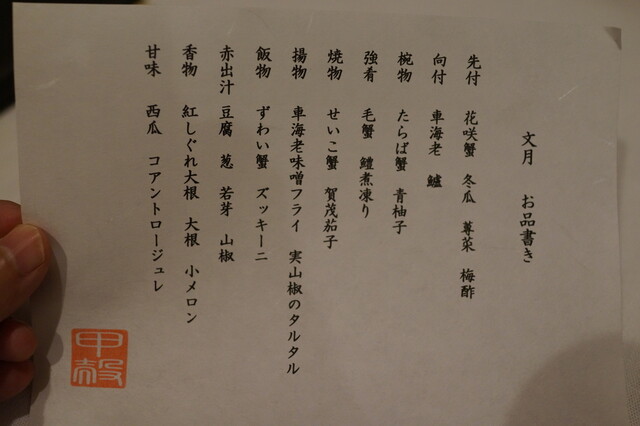 文月 お品書き
先付 花咲蟹 冬瓜 蓴菜 梅酢
向付 車海老 鱸
椀物 たらば蟹 青柚子
強肴 毛蟹 鱧煮凍り
焼物 せいこ蟹 賀茂茄子
揚物 車海老味噌フライ 実山椒のタルタル
飯物 ずわい蟹 ズッキーニ
赤出汁 豆腐 葱 若芽 山椒
香物 紅しぐれ大根 大根 小メロン
甘味 西瓜 コアントロージュレ
甲殻